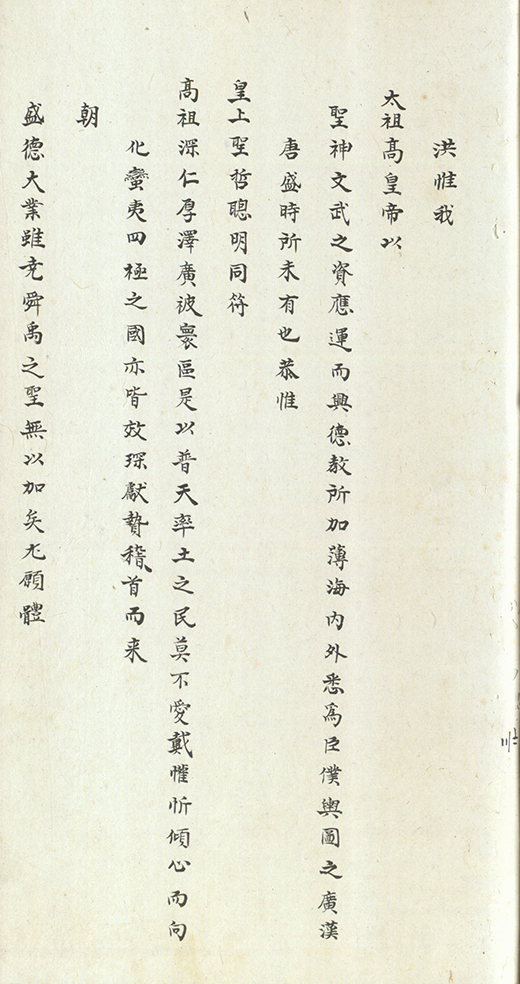 洪惟我
太祖高皇帝以
聖神文武之資應運而興德教所加薄海内外悉爲臣僕輿圖之廣漢
唐盛時所未有也恭惟
皇上聖哲聰明同符
高祖深仁厚澤廣被寰區是以普天率土之民莫不愛戴懽忻傾心而向
化蠻夷四極之國亦皆效琛獻贄稽首而来
朝
盛德大業雖尭舜禹之聖無以加矣尤願體